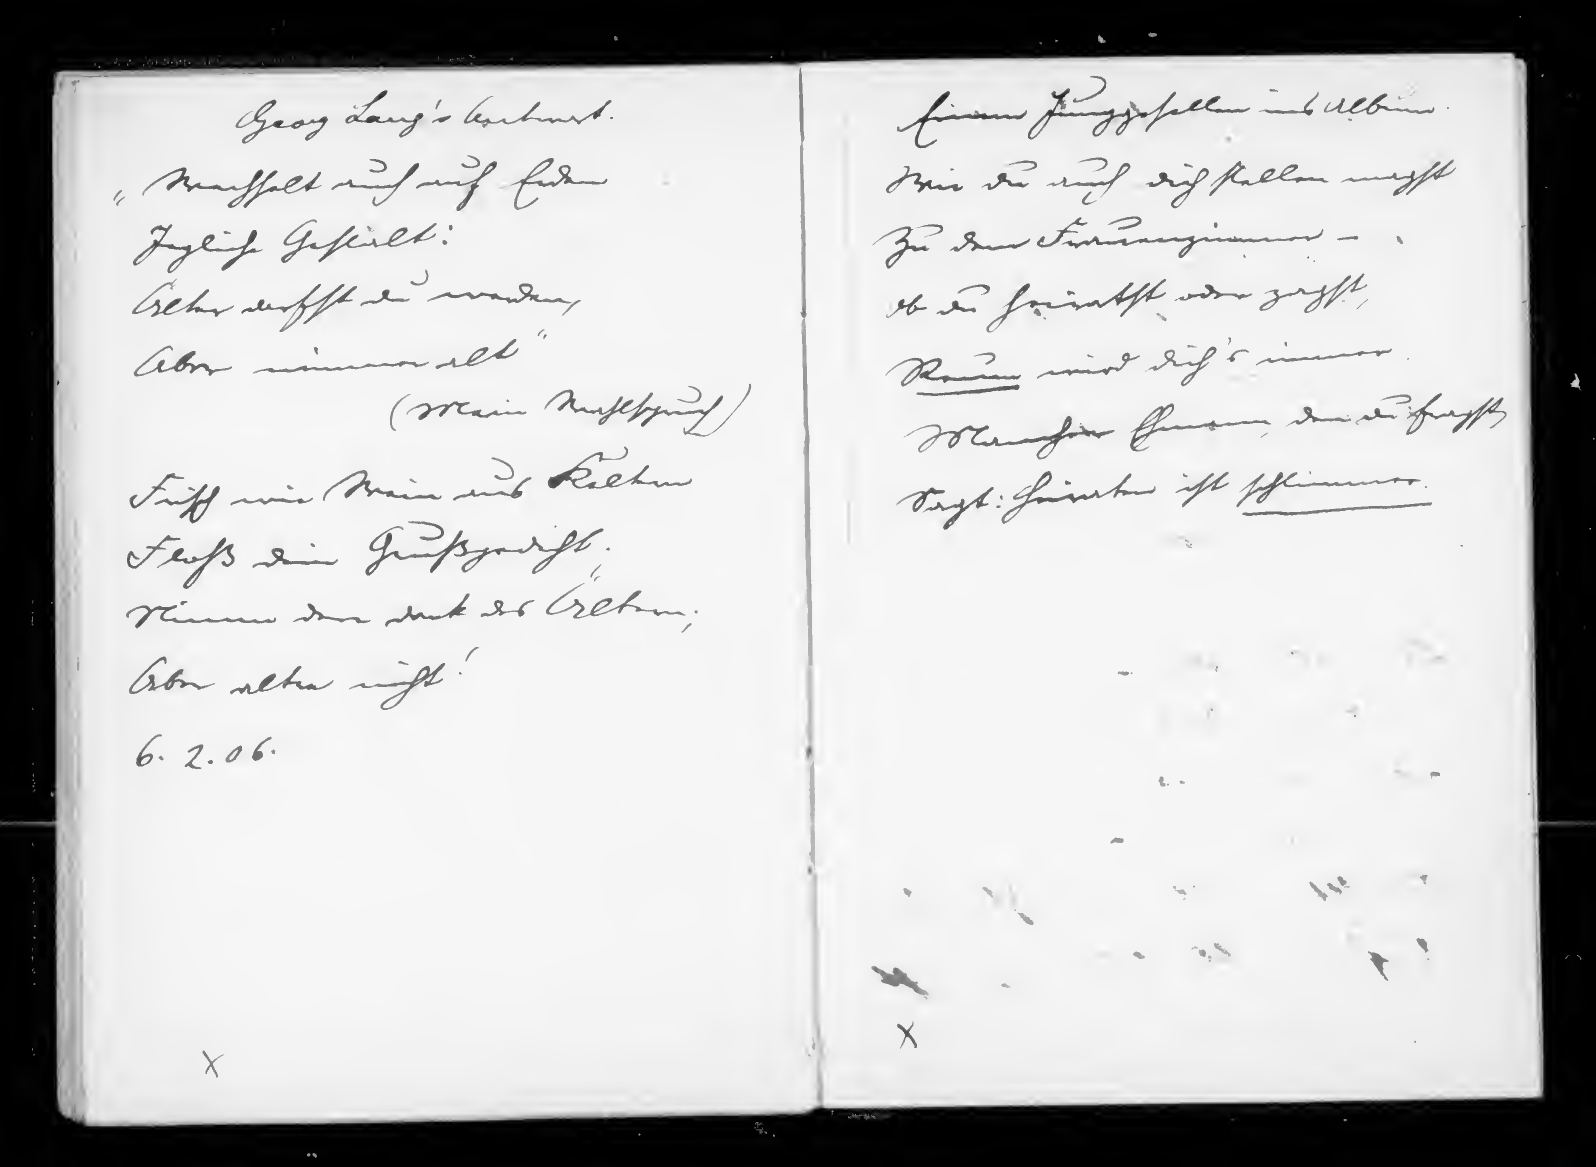 Georg Lang's Antwort.
„Wechselt auch auf Erden
Jegliche Gestalt:
Älter darfst du werden,
Aber nimmer alt"
(Mein Wahlspruch)
Frisch wie Wein aus Keltern
Floß dein Grußgedicht.
Nimm den Dank des Ältern;
Aber altre nicht!
6. 2. 06.
X
Einem Junggesellen ins Album.
Wie du auch dich stellen magst
Zu dem Frauenzimmer –
Ob du heiratst oder zagst,
Reuen wird dich's immer.
Mancher Ehmann, den du fragst,
Sagt: Heiraten ist schlimmer.
X